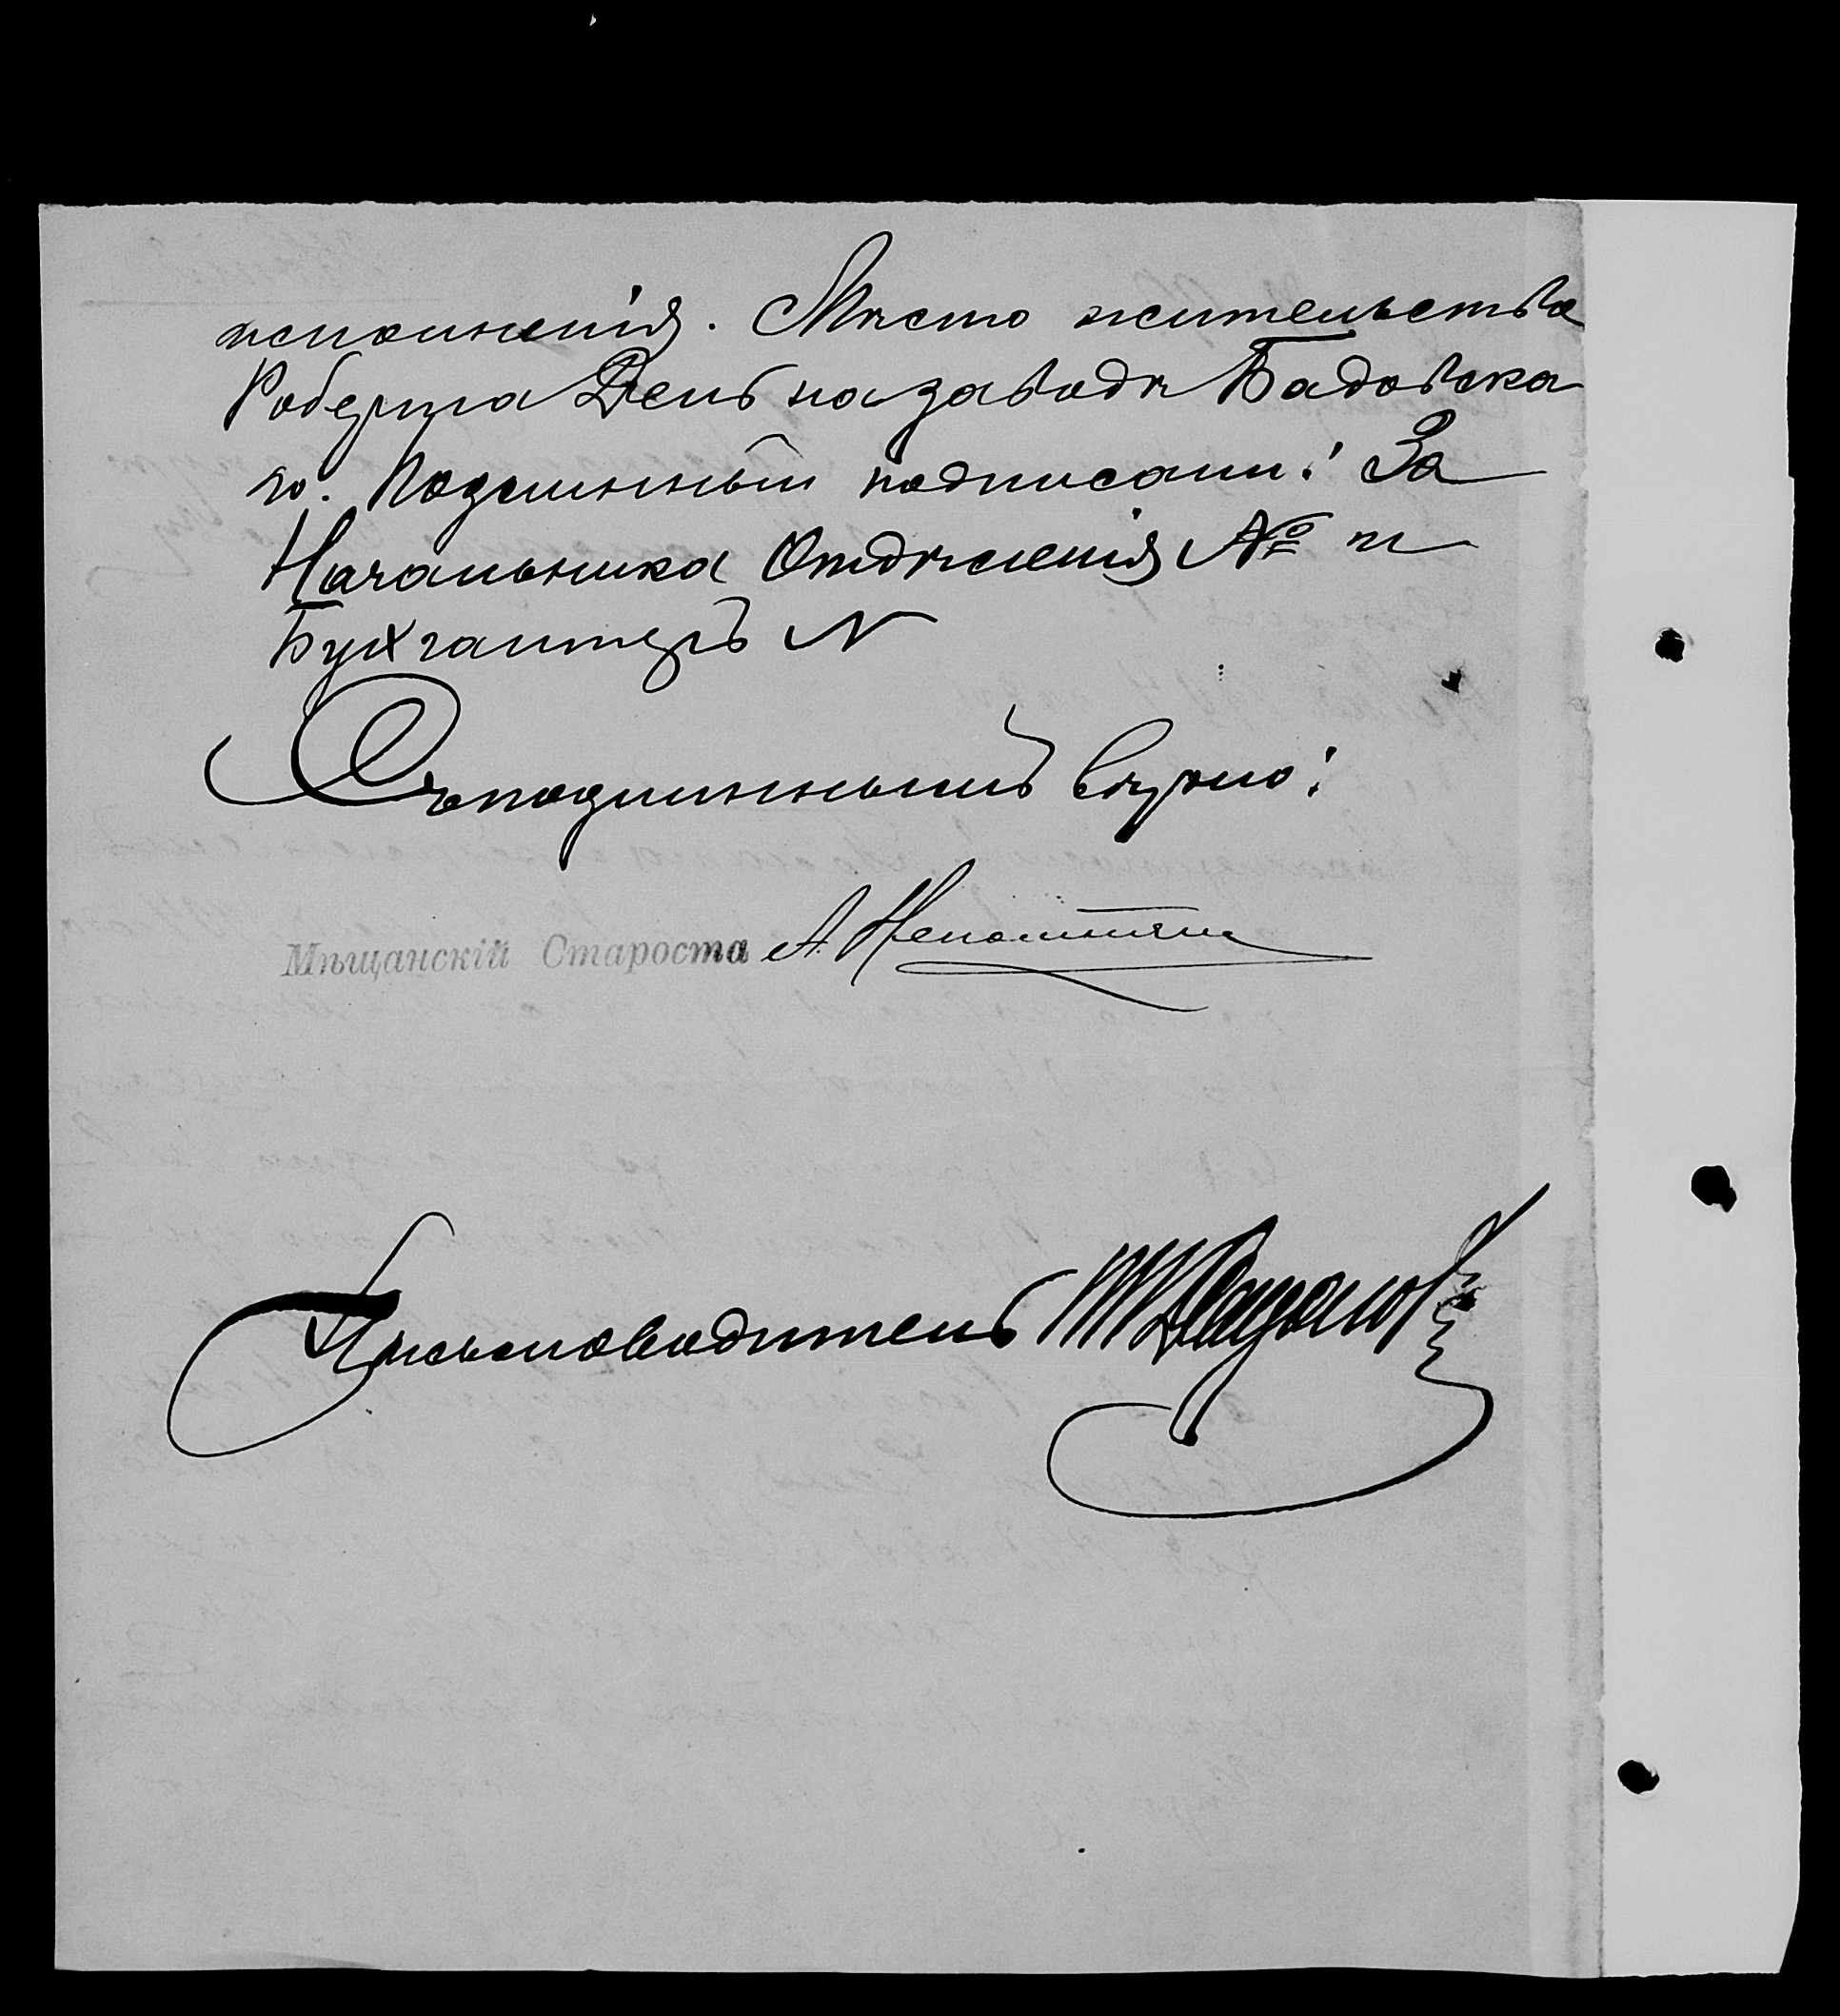 исполненія. Мѣсто жительства
Роберта День на заводѣ Бадовска
го. Подлинный подписали: За
Начальника Отдѣленія № и
Бухгалтеръ N
Съ подлиннымъ вѣрно:
Мѣщанскій Староста А. Непомнящ
Письмоводитель